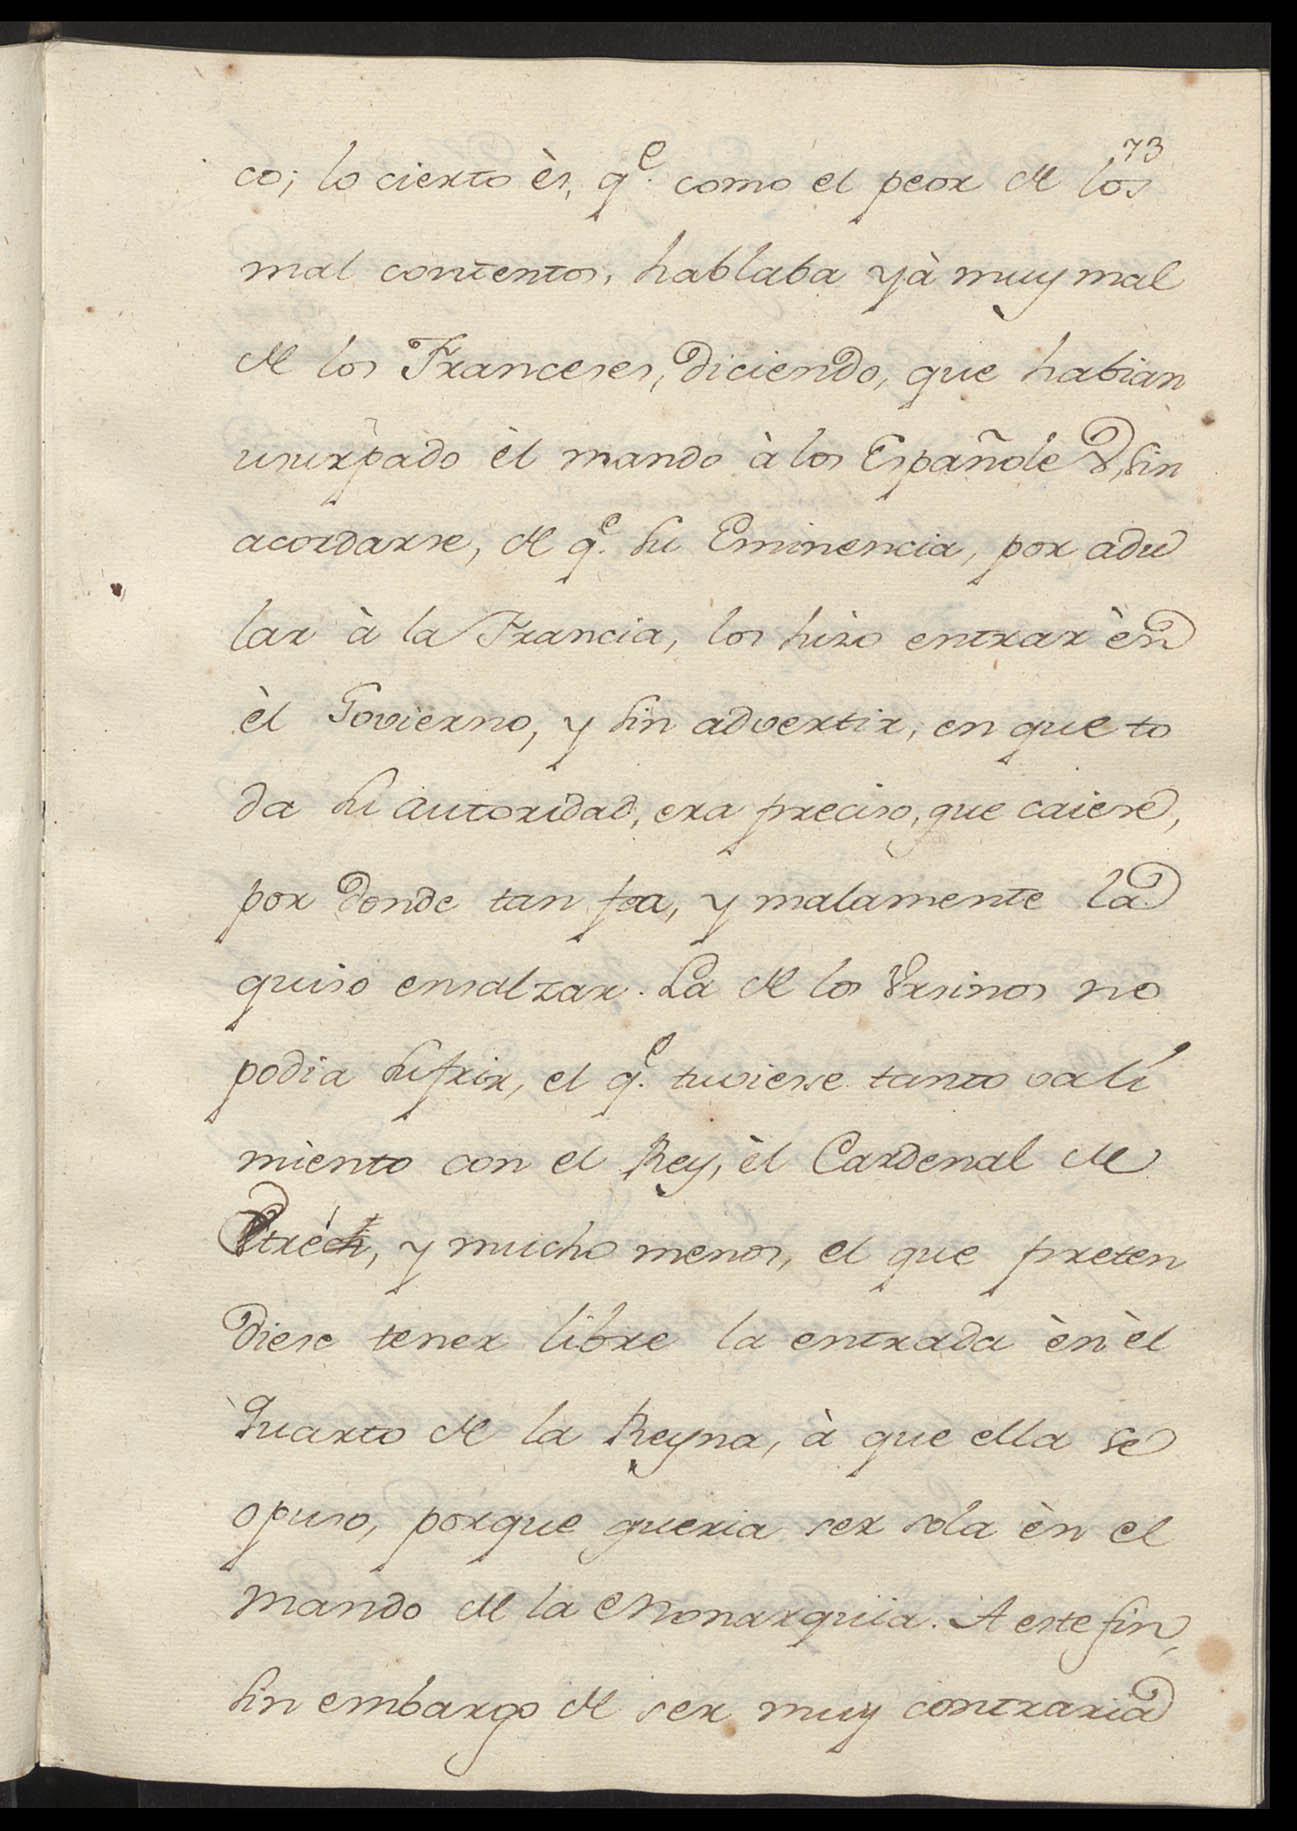 73
co; lo cierto ès, q.e como el peor de los
mal contentos, hablaba yà muy mal
de los Franceses, diciendo, que habian
usurpado èl mando à los Españoles, sin
acordarse, de q.e su Eminencia, por adu
lar à la Francia, los hizo entrar èn
èl Govierno, y sin advertir, en que to
da su autoridad, era preciso, que caiese,
por donde tan fea, y malamente la
quiso ensalzar. La de los Vrsinos no
podia sufrir, el q.e tuviese tanto vali
miento con el Rey, èl Cardenal de
Etréch, y mucho menos, el que preten
diese tener libre la entrada èn èl
Quarto de la Reyna, à que ella se
opuso, porque queria ser sola èn el
mando de la Monarquia. A este fin,
sin embargo de ser muy contraria